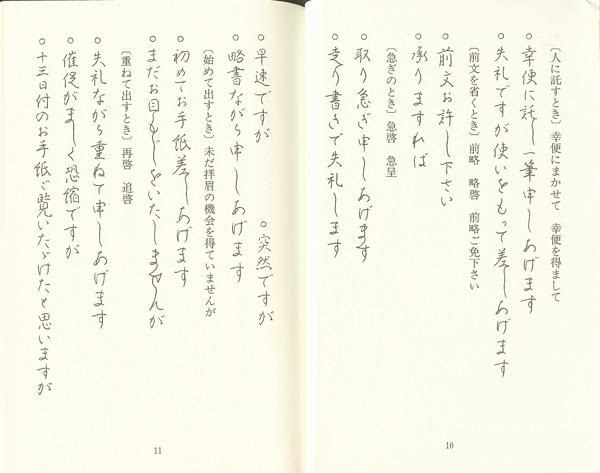 〔人に託すとき〕幸便にまかせて　幸便を得まして
○幸便に託し一筆申しあげます
○失礼ですが使いをもって差しあげます
〔前文を省くとき〕前略　略啓　前略ご免下さい
○前文お許し下さい
○承りますれば
〔急ぎのとき〕急啓　急呈
○取り急ぎ申しあげます
○走り書きで失礼します
10
○早速ですが　○突然ですが
○略書ながら申しあげます
〔始めて出すとき〕未だ拝眉の機会を得ていませんが
○初めてお手紙差しあげます
○まだお目もじをいたしませんが
〔重ねて出すとき〕再啓　追啓
○失礼ながら重ねて申しあげます
○催促がましく恐縮ですが
○十三日付のお手紙ご覧いただけたと思いますが
11